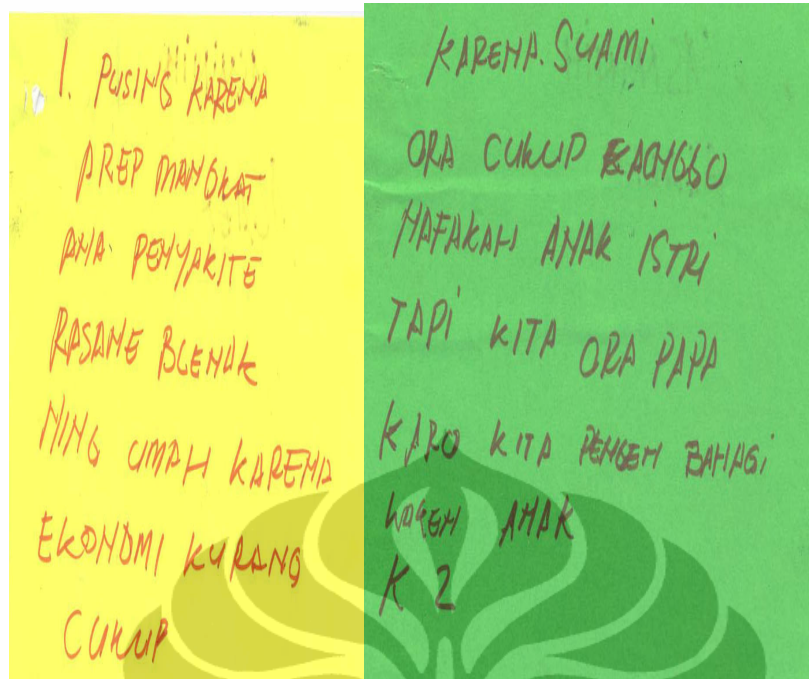 1. PUSING KARENA
AREP MANGKAT
ANA PENYAKITE
RASANE BLENAK
NING UMAH KARENA
EKONOMI KURANG
CUKUP
KARENA. SUAMI
ORA CUKUP KAONGGO
NAFAKAH ANAK ISTRI
TAPI KITA ORA PAPA
KARO KITA PENGEN BAHAGI
WAGEN ANAK
K 2